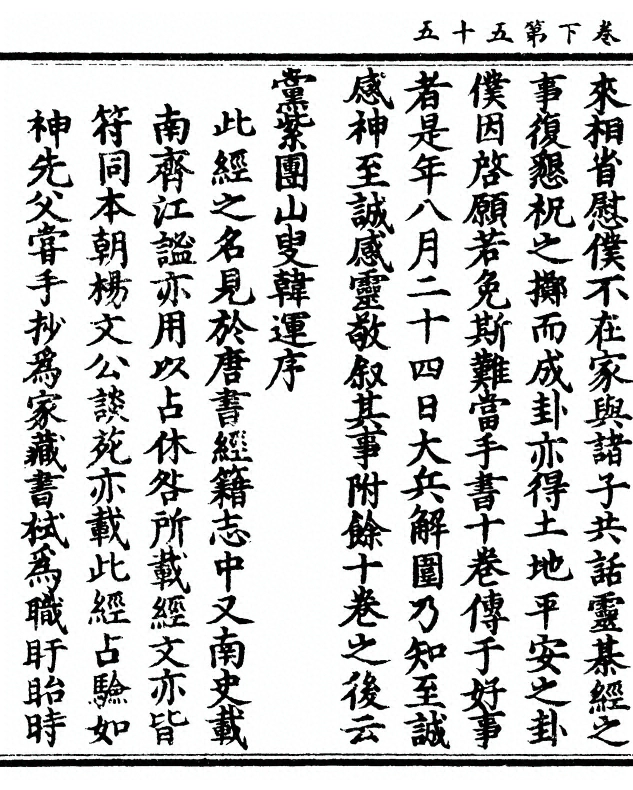 卷下第五十五
來相省慰僕不在家與諸子共話靈棊經之
事復懇祝之擲而成卦亦得土地平安之卦
僕因啓願若免斯難當手書十卷傳于好事
者是年八月二十四日大兵解圍乃知至誠
感神至誠感靈敬叙其事附餘十卷之後云
黨紫團山叟韓運序
此經之名見於唐書經籍志中又南史載
南齊江謐亦用以占休咎所載經文亦皆
符同本朝楊文公談苑亦載此經占驗如
神先父甞手抄爲家藏書栻爲職盱眙時